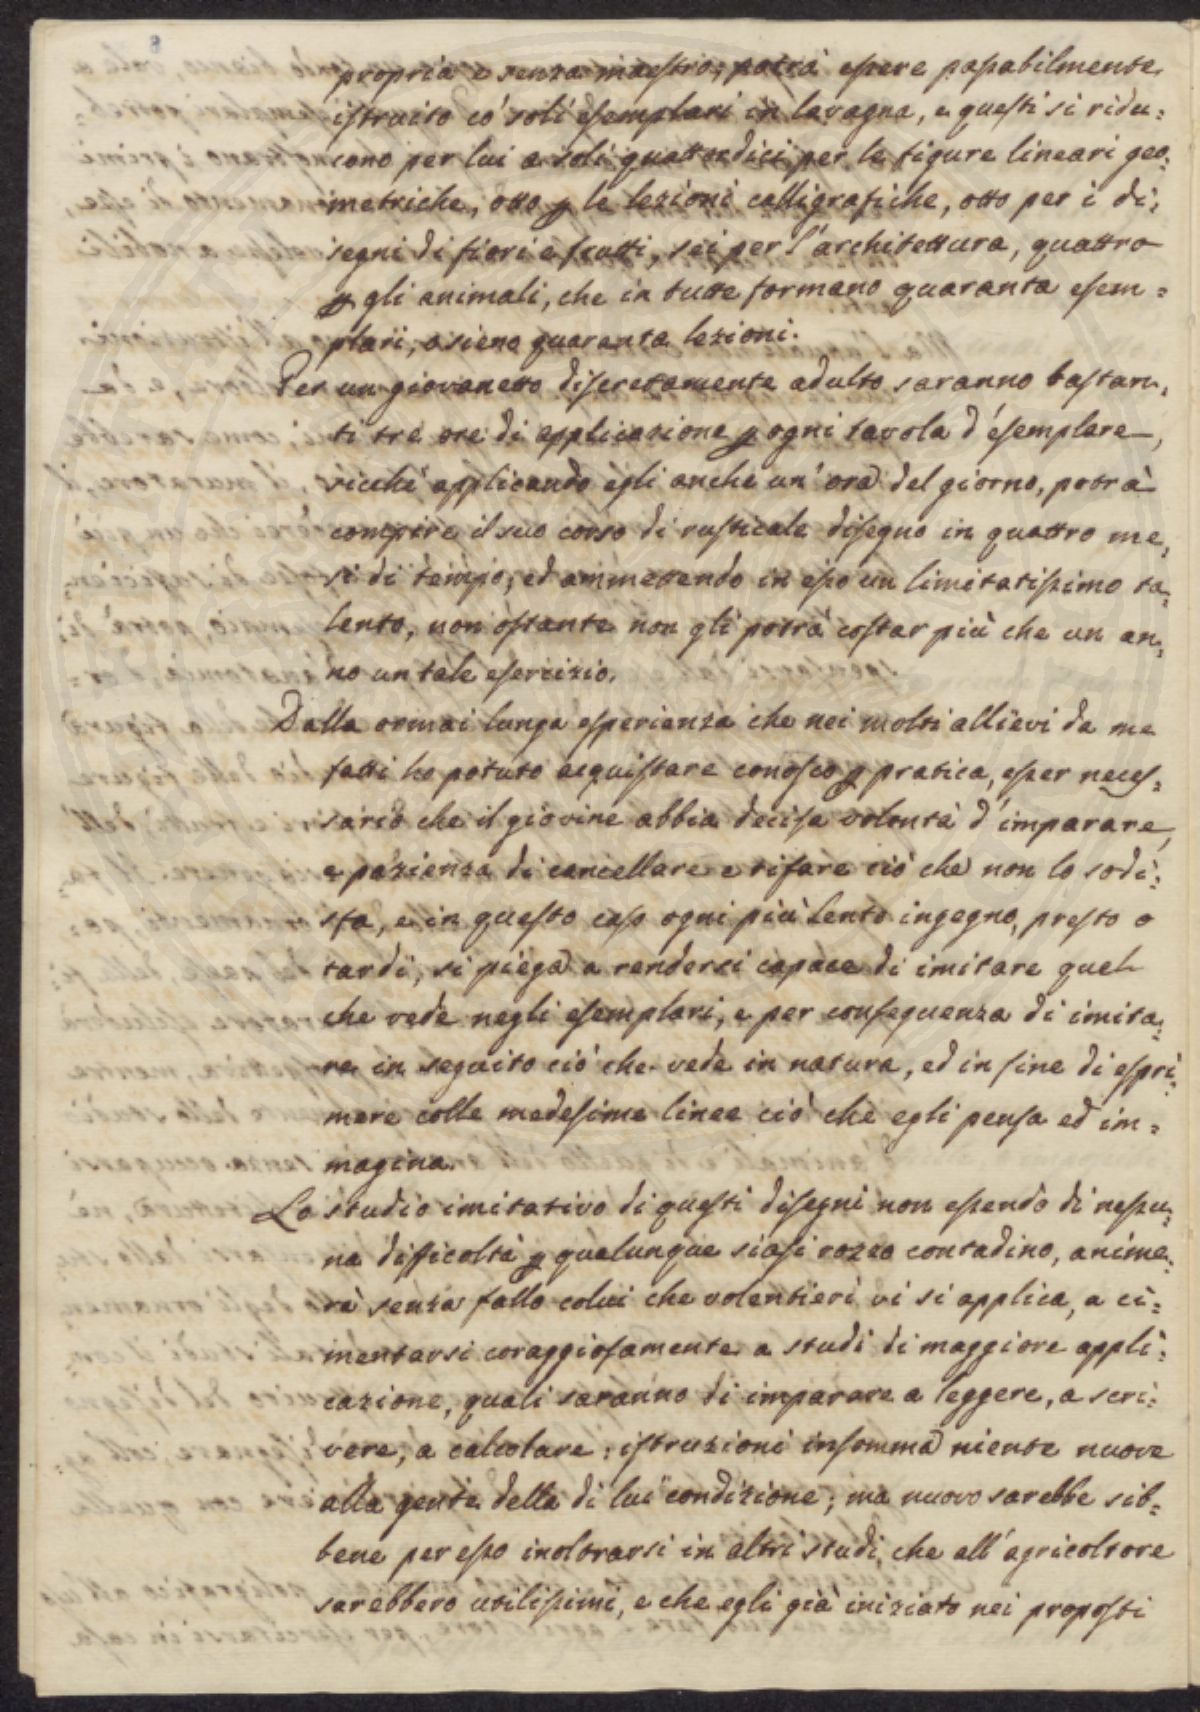 8
propria e senza maestro, potrà essere passabilmente
istruito co' soli esemplari in lavagna, e questi si ridu:
cono per lui a soli quattordici per le figure lineari geo:
metriche, otto p le lezioni calligrafiche, otto per i di:
segni di fiori e frutti, sei per l'architettura, quattro
p gli animali, che in tutte formano quaranta esem=
plari, o sieno quaranta lezioni.
Per un giovanetto discretamente adulto saranno bastan:
ti tre ore di applicazione p ogni tavola d'esemplare,
sicchè applicando egli anche un' ora del giorno, potrà
compire il suo corso di rusticale disegno in quattro me:
si di tempo, ed ammettendo in esso un limitatissimo ta:
lento, non ostante non gli potrà costar più che un an:
no un tale esercizio.
Dalla ormai lunga esperienza che nei molti allievi da me
fatti ho potuto acquistare conosco p pratica, esser neces=
sario che il giovine abbia decisa volontà d'imparare,
e pazienza di cancellare e rifare ciò che non lo sodi:
sfa, e in questo caso ogni più lento ingegno, presto o
tardi, si piega a rendersi capace di imitare quel
che vede negli esemplari, e per conseguenza di imita:
re in seguito ciò che vede in natura, ed in fine di espri:
mere colle medesime linee ciò che egli pensa ed im=
magina.
Lo studio imitativo di questi disegni non essendo di nessu:
na difficoltà p qualunque siasi rozzo contadino, anime:
rà senza fallo colui che volentieri vi si applica, a ci:
mentarsi coraggiosamente a studi di maggiore appli:
cazione, quali saranno di imparare a leggere, a scri:
vere, a calcolare; istruzioni insomma niente nuove
alla gente della di lui condizione; ma nuovo sarebbe sib=
bene per esso inoltrarsi in altri studi, che all'agricoltore
sarebbero utilissimi, e che egli già iniziato nei proposti